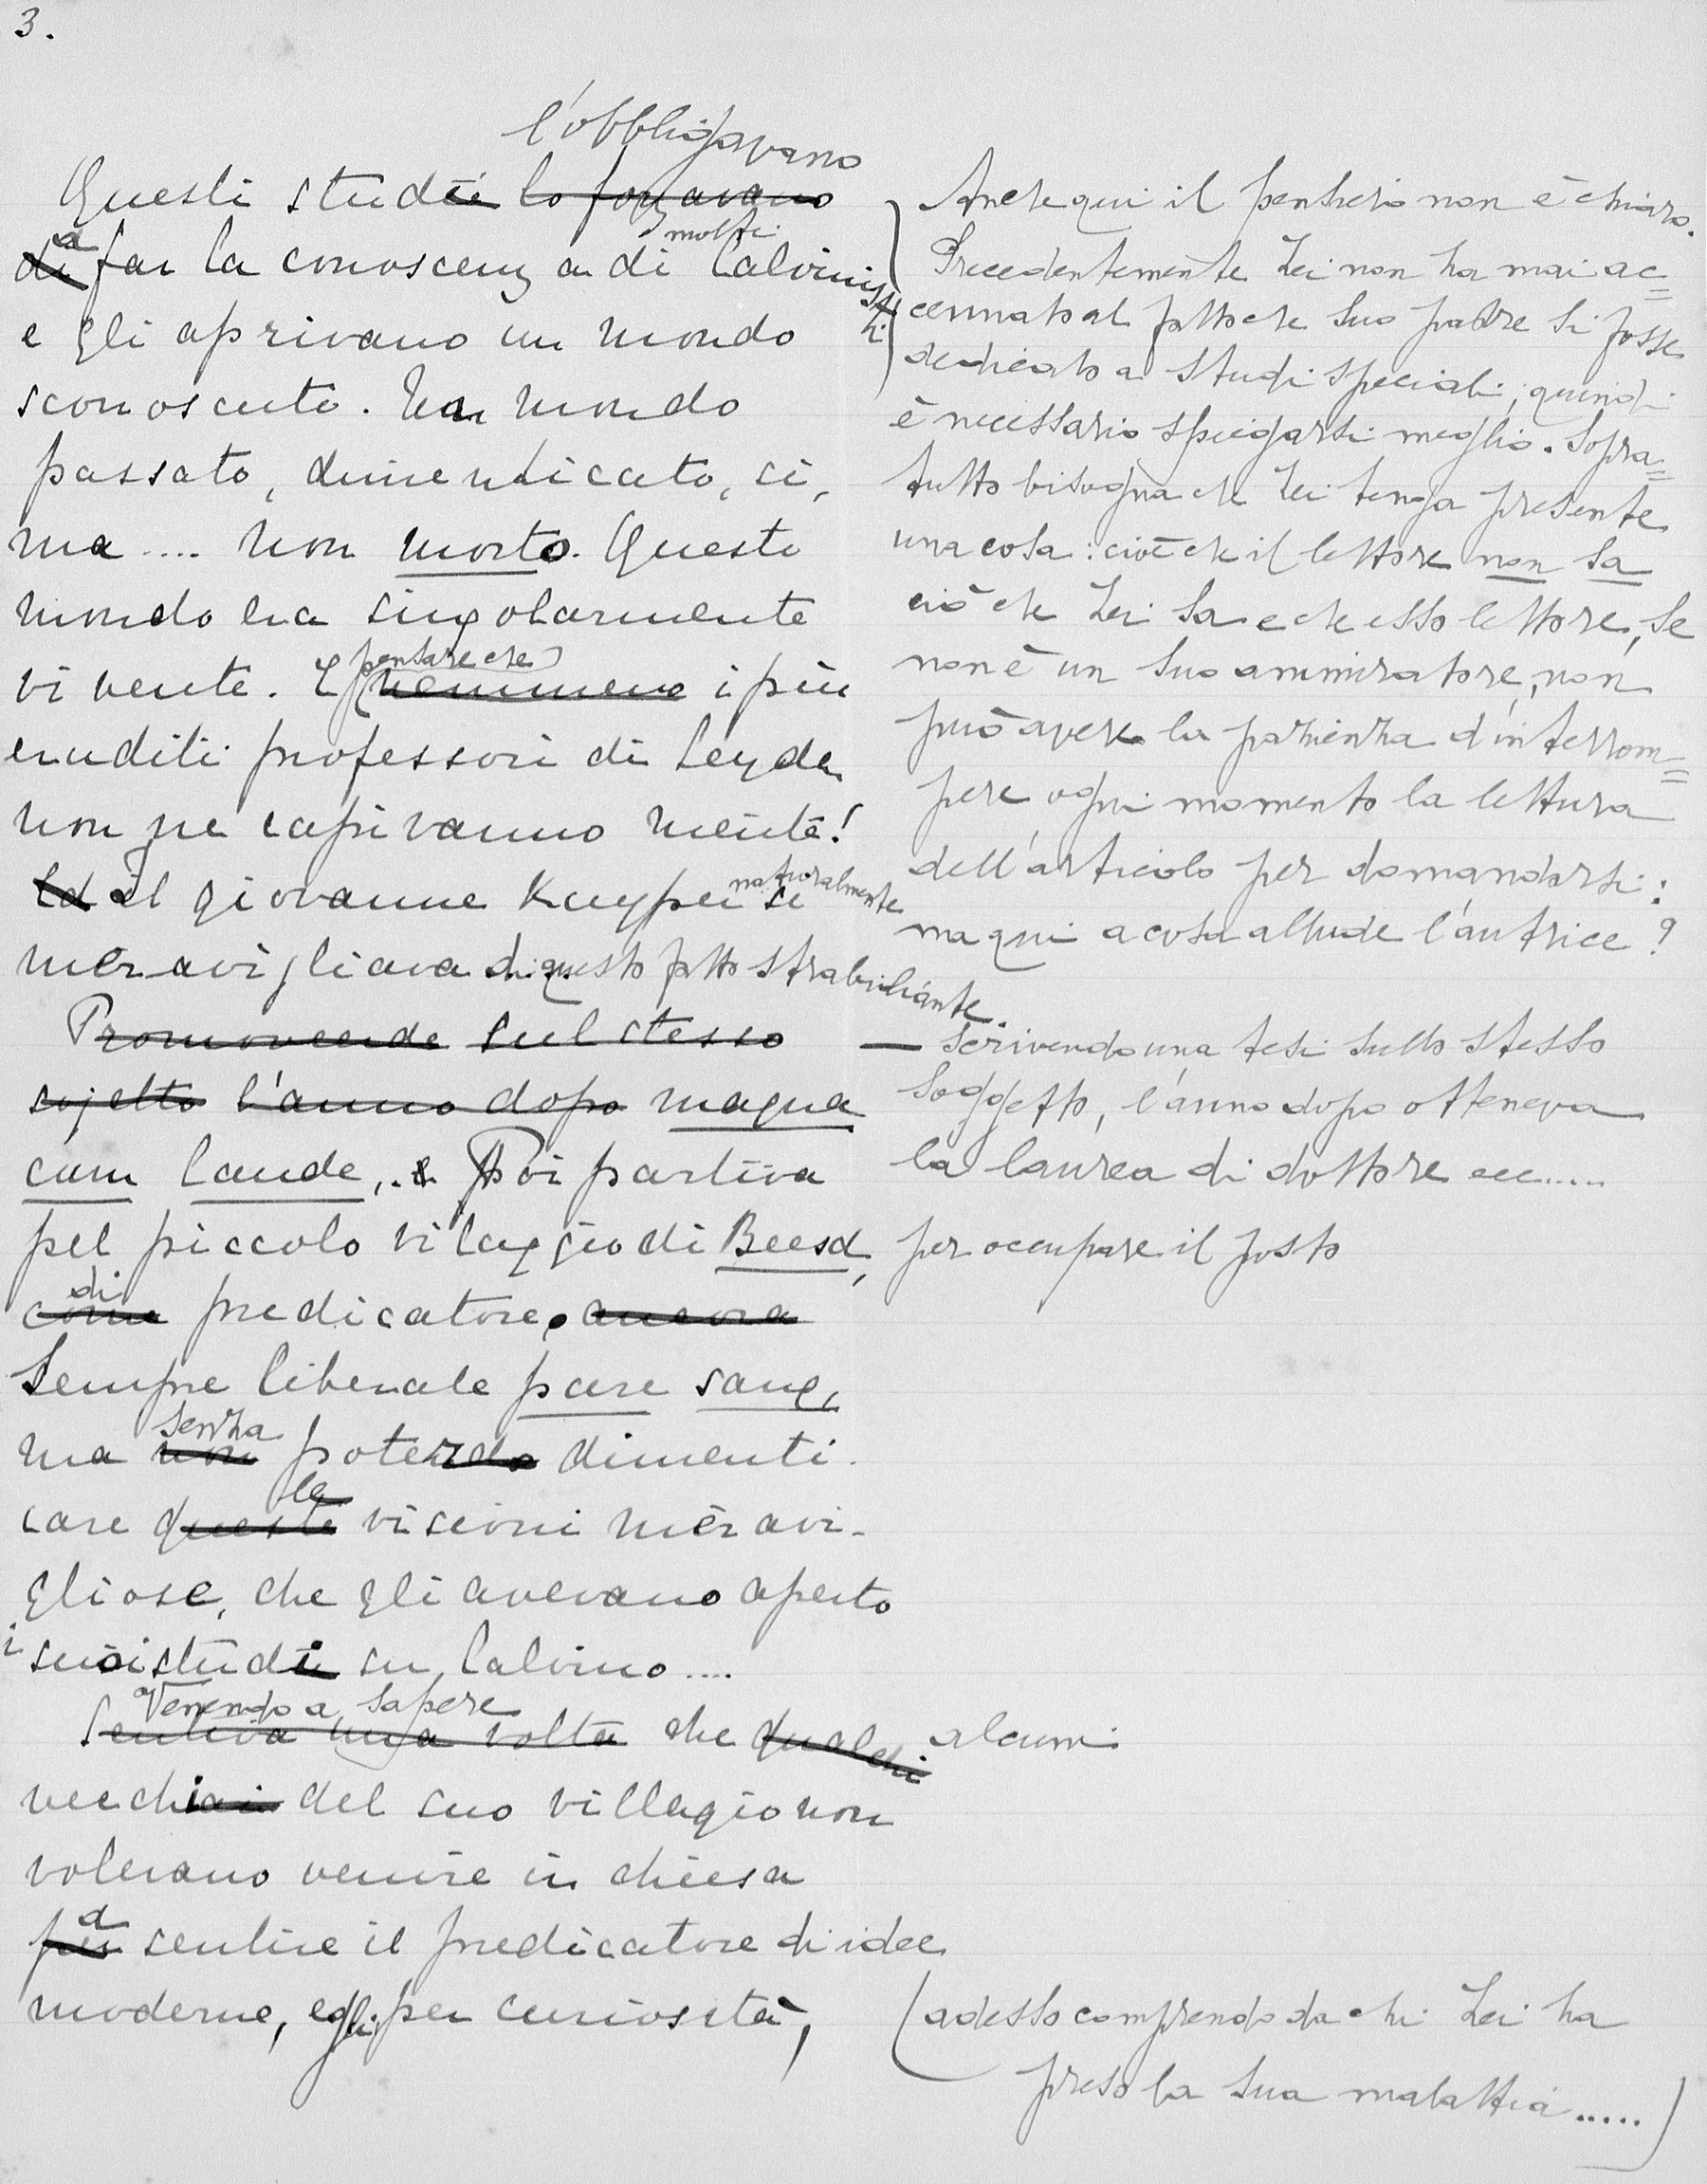 3.
l'obbligavano
Questi studii lo forzavano
di a far la conoscenza di molti Calvinisti
e gli aprivano un mondo
sconosciuto. Un mondo
passato, dimenticato, si,
ma .... non morto. Questo
mondo era singolarmente
vivente. E pensare che nemmeno i più
eruditi professori di Leyda
non ne capivanno niente!
Ed il giovanne Kuyper si naturalmente
meravigliava di questo fatto strabiliante.
Promovendo sul stesso
sojetto l'anno dopo magna
cum laude, e Poi partiva
pel piccolo vilaggio di Beesd,
come di predicatore, ancora
Sempre liberale pure sang,
ma non senza potendo dimenti-
care queste le visioni meravi-
gliose, che gli avevano aperto
i suoi studii su Calvino ....
Venendo a sapere
Sentiva una volta che qualchi alcuni
vecchiai del suo villagio non
volevano venire in chiesa
per a sentire il predicatore di idee
moderne, egli per curiosità,
Anche qui il pensiero non è chiaro.
Precedentemente Lei non ha mai ac=
cennato al fatto che Suo padre si fosse
dedicato a studi speciali; quindi
è necessario spiegarsi meglio. Sopra=
tutto bisogna che Lei tenga presente
una cosa: cioè che il lettore non sa
ciò che Lei sa e che esso lettore, se
non è un Suo ammiratore, non
può avere la pazienza d'interrom=
pere ogni momento la lettura
dell'articolo per domandarsi:
ma qui a cosa allude l'autrice?
— Scrivendo una tesi sullo stesso
soggetto, l'anno dopo otteneva
la laurea di dottore ecc.....
per occupare il posto
(adesso comprendo da chi Lei ha
preso la Sua malattia.....)